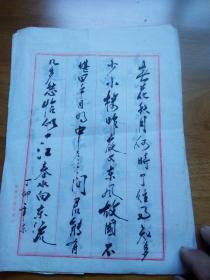 春花秋月何時了往事知多
少小樓昨夜又東風故國不
堪回首月明中
问君能有
几多愁恰似一江春水向東流
丁卯